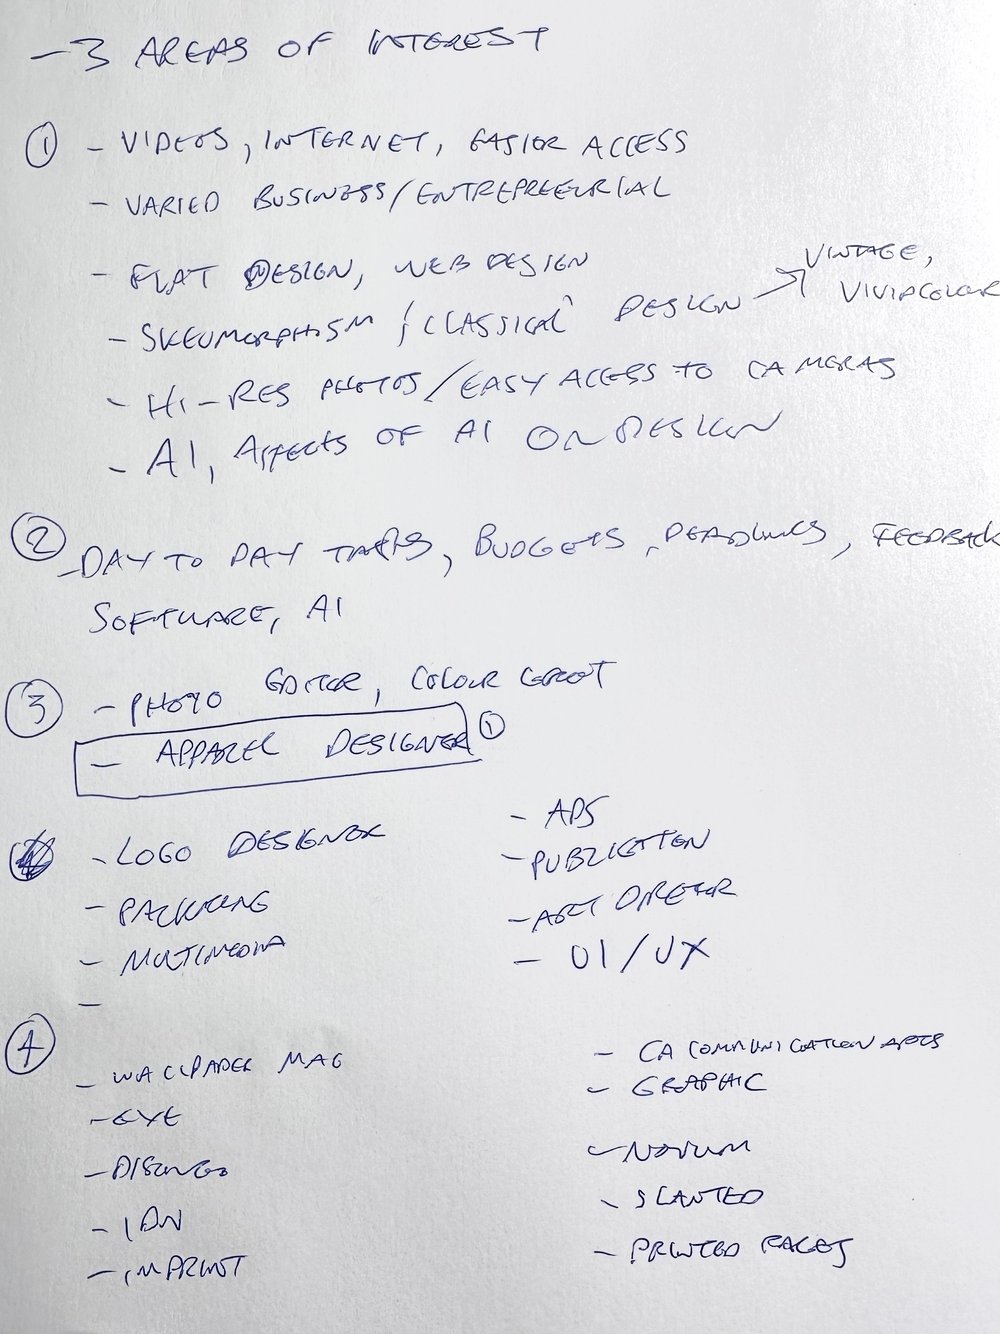 - 3 AREAS OF INTEREST
① - VIDEOS, INTERNET, EASIOR ACCESS
- VARIED BUSINESS/ENTREPREEURIAL
- FLAT DESIGN, WEB DESIGN
VINTAGE,
VIVID COLOUR
- SKEUMORPHISM / 'CLASSICAL' DESIGN →
- HI-RES PHOTOS/EASY ACCESS TO CAMERAS
- AI, AFFECTS OF AI ON DESIGN
② - DAY TO DAY TASKS, BUDGETS, DEADLINES, FEEDBACK
SOFTWARE, AI
③ - PHOTO EDITOR, COLOUR
- APPAREL DESIGNER ①
- LOGO DESIGNER
-
- MULTIMEDIA
-
- ADS
- PUBLICATION
- ART DIRECTOR
- UI/UX
④
- WALLPAPER MAG
- EYE
-
- IDN
- IMPRINT
- CA COMMUNICATION ARTS
- GRAPHIC
- NOVUM
- SLANTED
- PRINTED PAGES